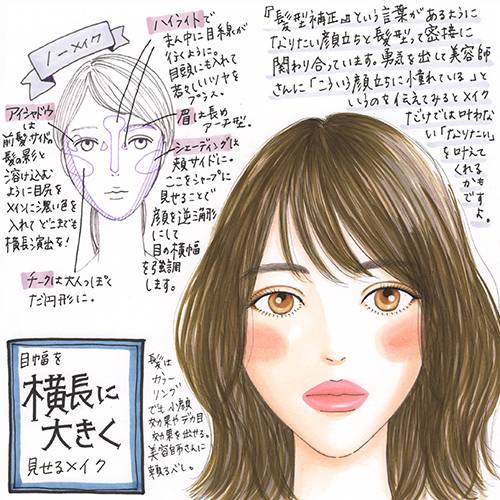 ノーメイク
ハイライトで
まん中に目線が
行くように。
目頭にも入れて
若々しいツヤを
プラス。
眉は長め
アーチ型。
シェーディングは
頬サイドに。
ここをシャープに
見せることで
顔を逆三角形
にして
目の横幅
を強調
します。
アイシャドウ
は
前髪サイドの
髪の影と
溶け込む
ように目尻を
メインに濃い色を
入れてどこまでも
横長を演出!
チークは大人っぽく
だ円形に。
『髪型補正』という言葉があるように
なりたい顔立ちと髪型って密接に
関わり合っています。勇気を出して美容師
さんに「こういう顔立ちに憧れている」と
いうのを伝えてみるとメイク
だけでは叶わな
い「なりたい」
を叶えて
くれる
かも
ですよ。
目幅を
横長に
大きく
見せるメイク
髪は
カラー
リング
でも小顔
効果やデカ目
効果を出せる。
美容師さんに
頼るべし。